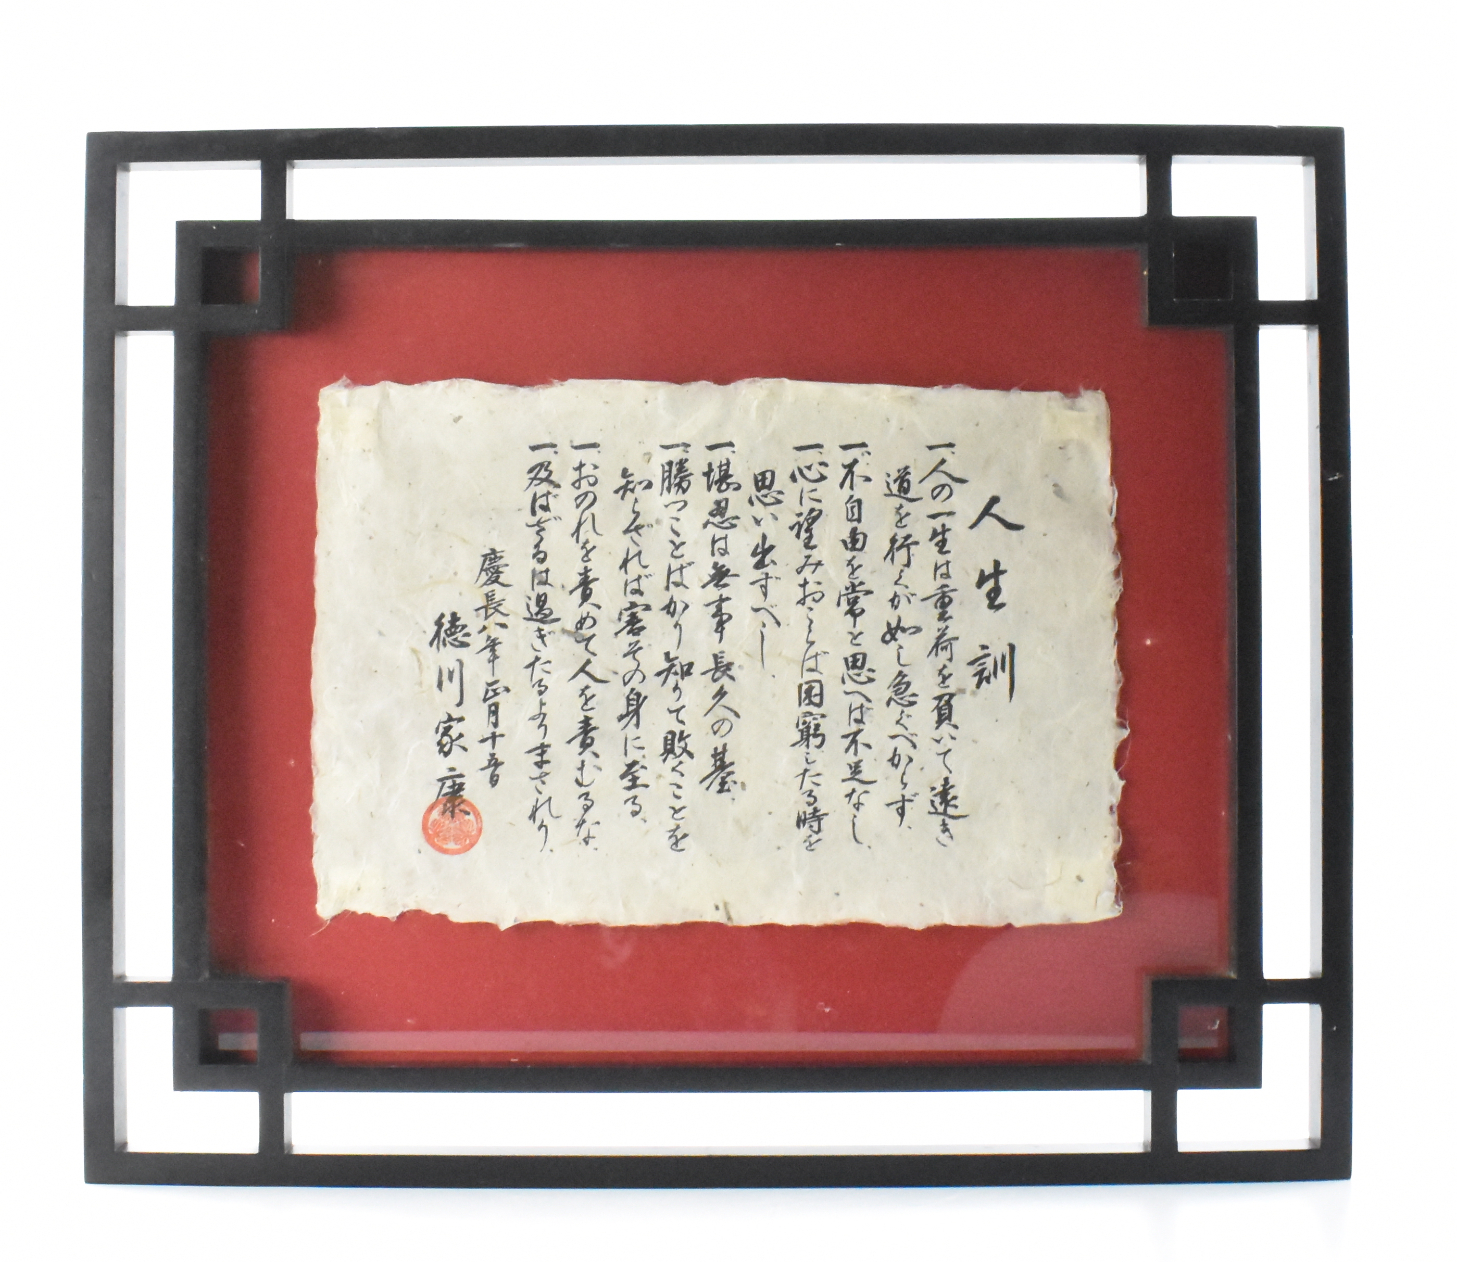 人生訓
一、人の一生は重荷を負いて遠き
道を行くが如し急ぐべからず、
一、不自由を常と思へば不足なし、
一、心に望みおこらば困窮したる時を
思い出すべし
一、堪忍は無事長久の基、
一、勝つことばかり知りて敗くることを
知らざれば害その身に至る、
一、おのれを責めて人を責むるな、
一、及ばざるは過ぎたるよりまされり、
慶長八年正月十五日
徳川家康